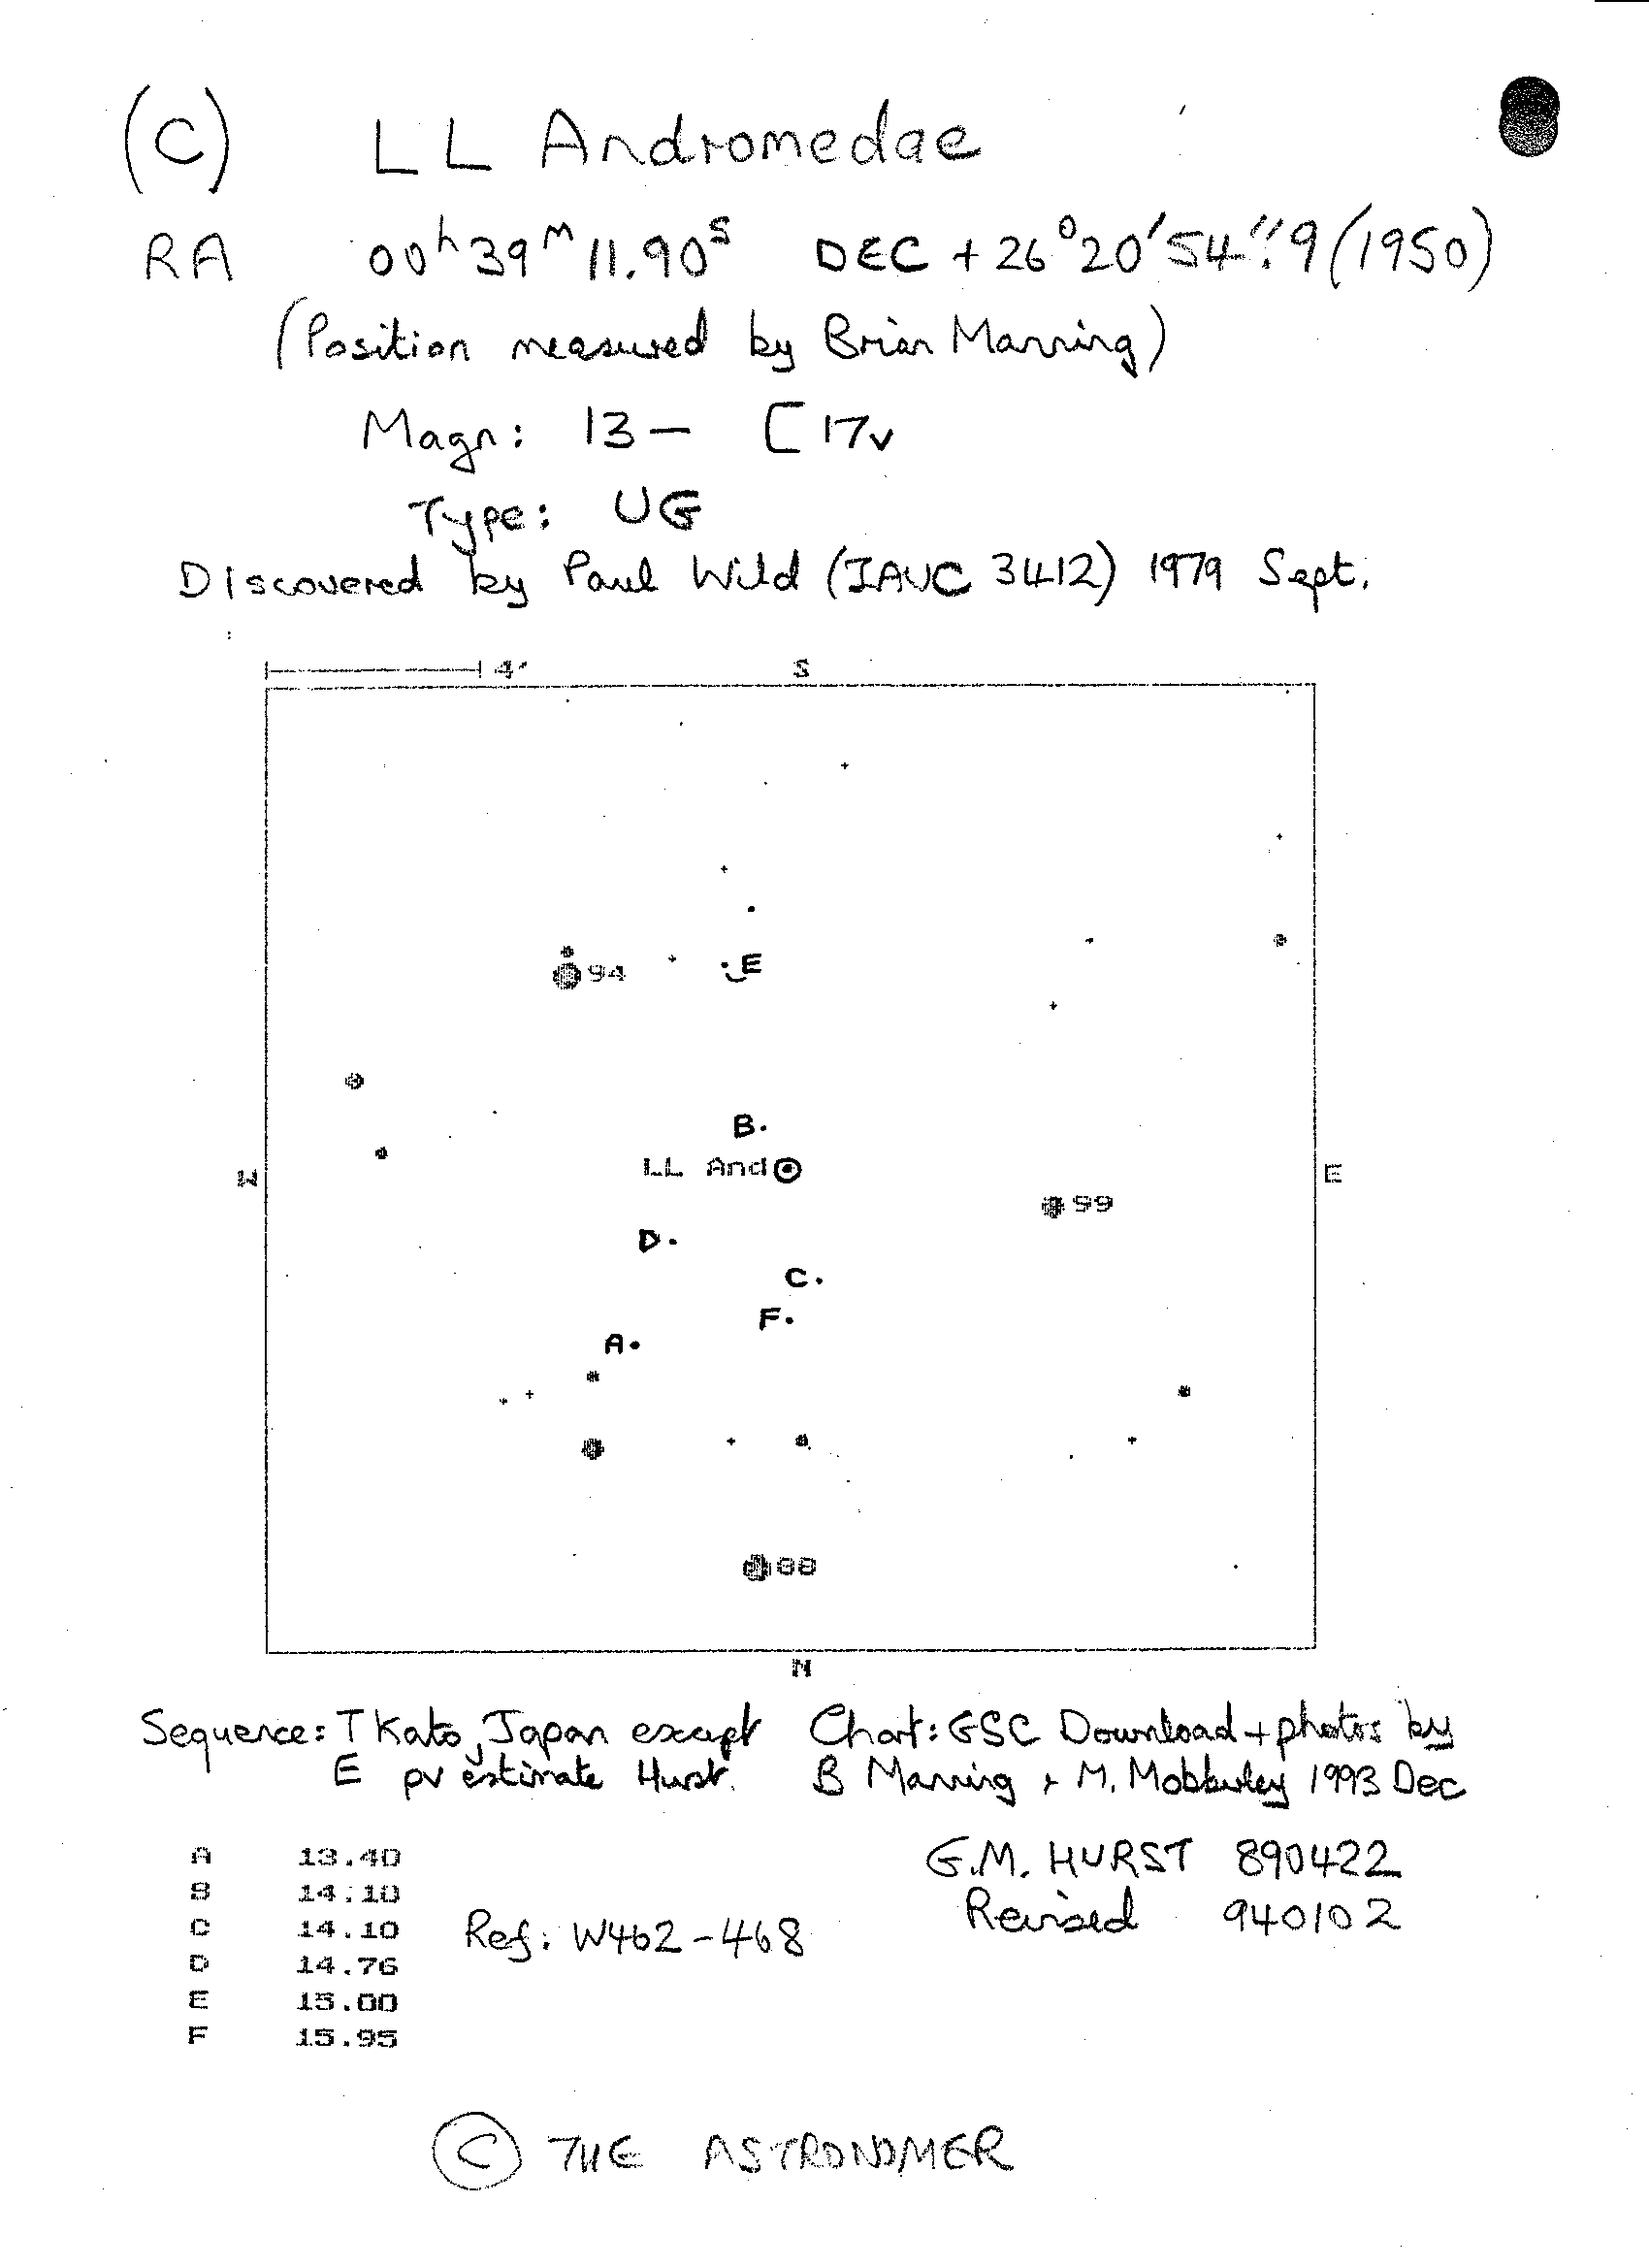 (C) LL Andromedae
RA 00h 39m 11.90s DEC + 26° 20' 54".9 (1950)
(Position measured by Brian Manning)
Magn: 13 - [17v
Type: UG
Discovered by Paul Wild (IAUC 3412) 1979 Sept.
4' S
94 E
B
W LL And E
99
D
C
F
A
88
N
Sequence: T Kato, Japan except Chart: GSC Download + photos by
E pv estimate Hurst. B Manning + M. Mobberley 1993 Dec
A 13.40
B 14.10
C 14.10
D 14.76
E 15.00
F 15.95
G.M. HURST 890422
Revised 940102
Ref: W462-468
© THE ASTRONOMER